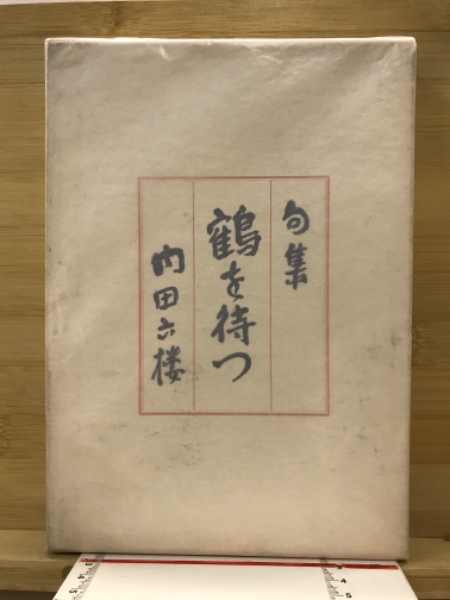 句集
鶴を待つ
内田六楼